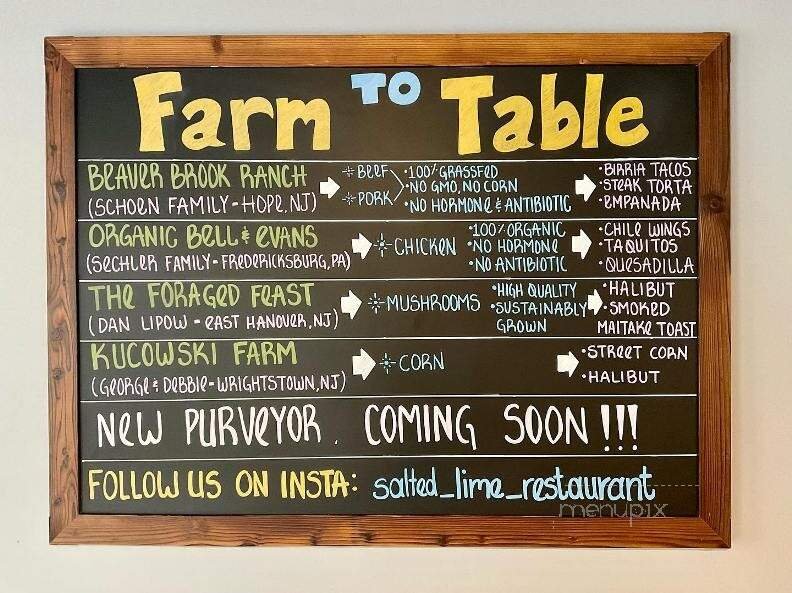 Farm TO Table
BEAVER BROOK RANCH
(SCHOEN FAMILY - HOPE, NJ)
BEEF
PORK
•100% GRASSFED
•NO GMO, NO CORN
•NO HORMONE & ANTIBIOTIC
•BIRRIA TACOS
•STEAK TORTA
•EMPANADA
ORGANIC BELL & EVANS
(SECHLER FAMILY - FREDERICKSBURG, PA)
CHICKEN
•100% ORGANIC
•NO HORMONE
•NO ANTIBIOTIC
•CHILE WINGS
•TAQUITOS
•QUESADILLA
THE FORAGED FEAST
(DAN LIPOW - EAST HANOVER, NJ)
MUSHROOMS
•HIGH QUALITY
•SUSTAINABLY
GROWN
•HALIBUT
•SMOKED
MAITAKE TOAST
KUCOWSKI FARM
(GEORGE & DEBBIE - WRIGHTSTOWN, NJ)
CORN
•STREET CORN
•HALIBUT
NEW PURVEYOR. COMING SOON!!!
FOLLOW US ON INSTA: salted_lime_restaurant
menupix